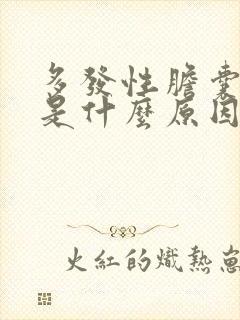 多發性膽囊
是什麼原因
火紅的熾熱